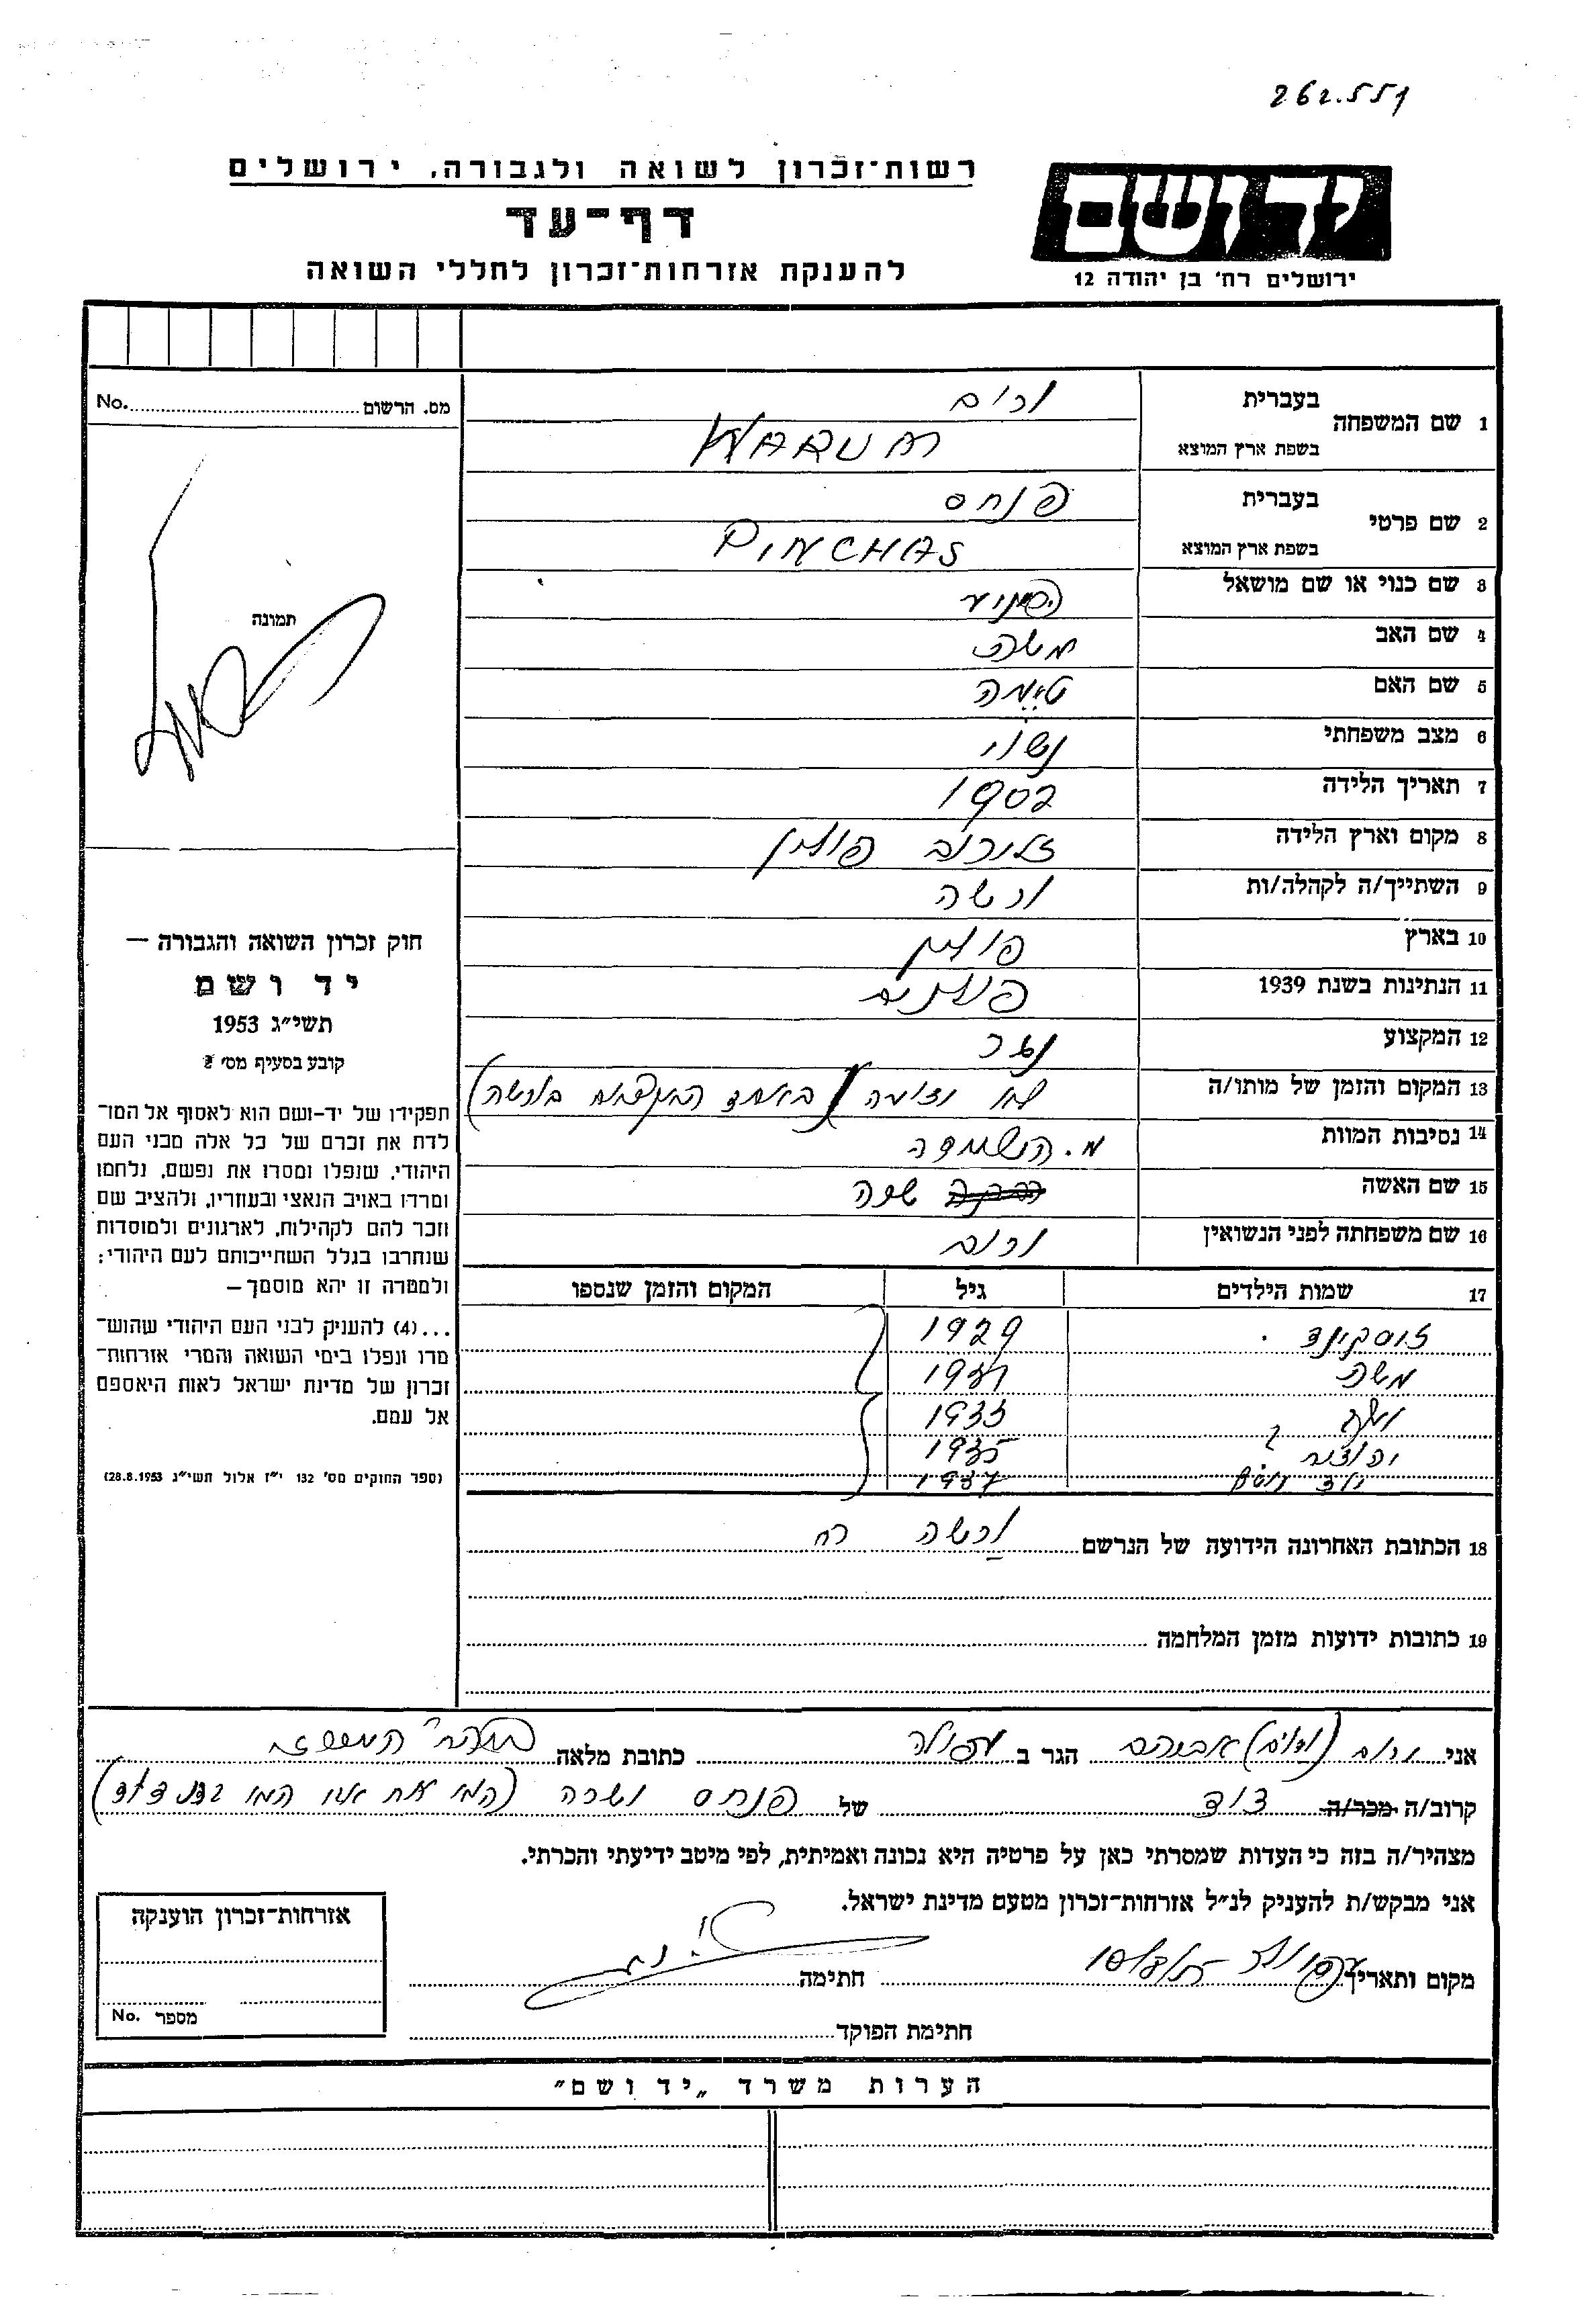 262.551
רשות־זכרון לשואה ולגבורה, ירושלים
דף־עד
להענקת אזרחות־זכרון לחללי השואה
יד ושם
ירושלים רח' בן יהודה 12
מס. הרשום No.
תמונה
1 שם המשפחה
בעברית ורום
בשפת ארץ המוצא WARUM
2 שם פרטי
בעברית פנחס
בשפת ארץ המוצא PINCHAS
3 שם כנוי או שם מושאל
4 שם האב משה
5 שם האם טימה
6 מצב משפחתי נשוי
7 תאריך הלידה 1902
8 מקום וארץ הלידה פולין
9 השתייך/ה לקהלה/ות ורשה
10 בארץ פולין
11 הנתינות בשנת 1939 פולנים
12 המקצוע נגר
13 המקום והזמן של מותו/ה לא (באחד בורשה)
14 נסיבות המוות מ. השמדה
15 שם האשה שרה
16 שם משפחתה לפני הנשואין ורום
17 שמות הילדים גיל המקום והזמן שנספו
זוסקינד 1929
משה 1931
1933
1935
1937
18 הכתובת האחרונה הידועה של הנרשם ורשה רח
19 כתובות ידועות מזמן המלחמה
חוק זכרון השואה והגבורה —
יד ושם
תשי״ג 1953
קובע בסעיף מס' 2
תפקידו של יד-ושם הוא לאסוף אל המו־
לדת את זכרם של כל אלה מבני העם
היהודי, שנפלו ומסרו את נפשם, נלחמו
ומרדו באויב הנאצי ובעוזריו, ולהציב שם
וזכר להם לקהילות, לארגונים ולמוסדות
שנחרבו בגלל השתייכותם לעם היהודי;
ולמטרה זו יהא מוסמך—
...(4) להעניק לבני העם היהודי שהוש־
מדו ונפלו בימי השואה והמרי אזרחות־
זכרון של מדינת ישראל לאות היאספם
אל עמם.
(ספר החוקים מס' 132 י״ז אלול תשי״ג 28.8.1953)
אני ורום אברהם הגר ב עפולה כתובת מלאה
קרוב/ה מכר/ה דוד של פנחס ושרה
מצהיר/ה בזה כי העדות שמסרתי כאן על פרטיה היא נכונה ואמיתית, לפי מיטב ידיעתי והכרתי.
אני מבקש/ת להעניק לנ״ל אזרחות־זכרון מטעם מדינת ישראל.
מקום ותאריך עפולה חתימה
חתימת הפוקד
אזרחות־זכרון הוענקה
מספר No.
הערות משרד „יד ושם"